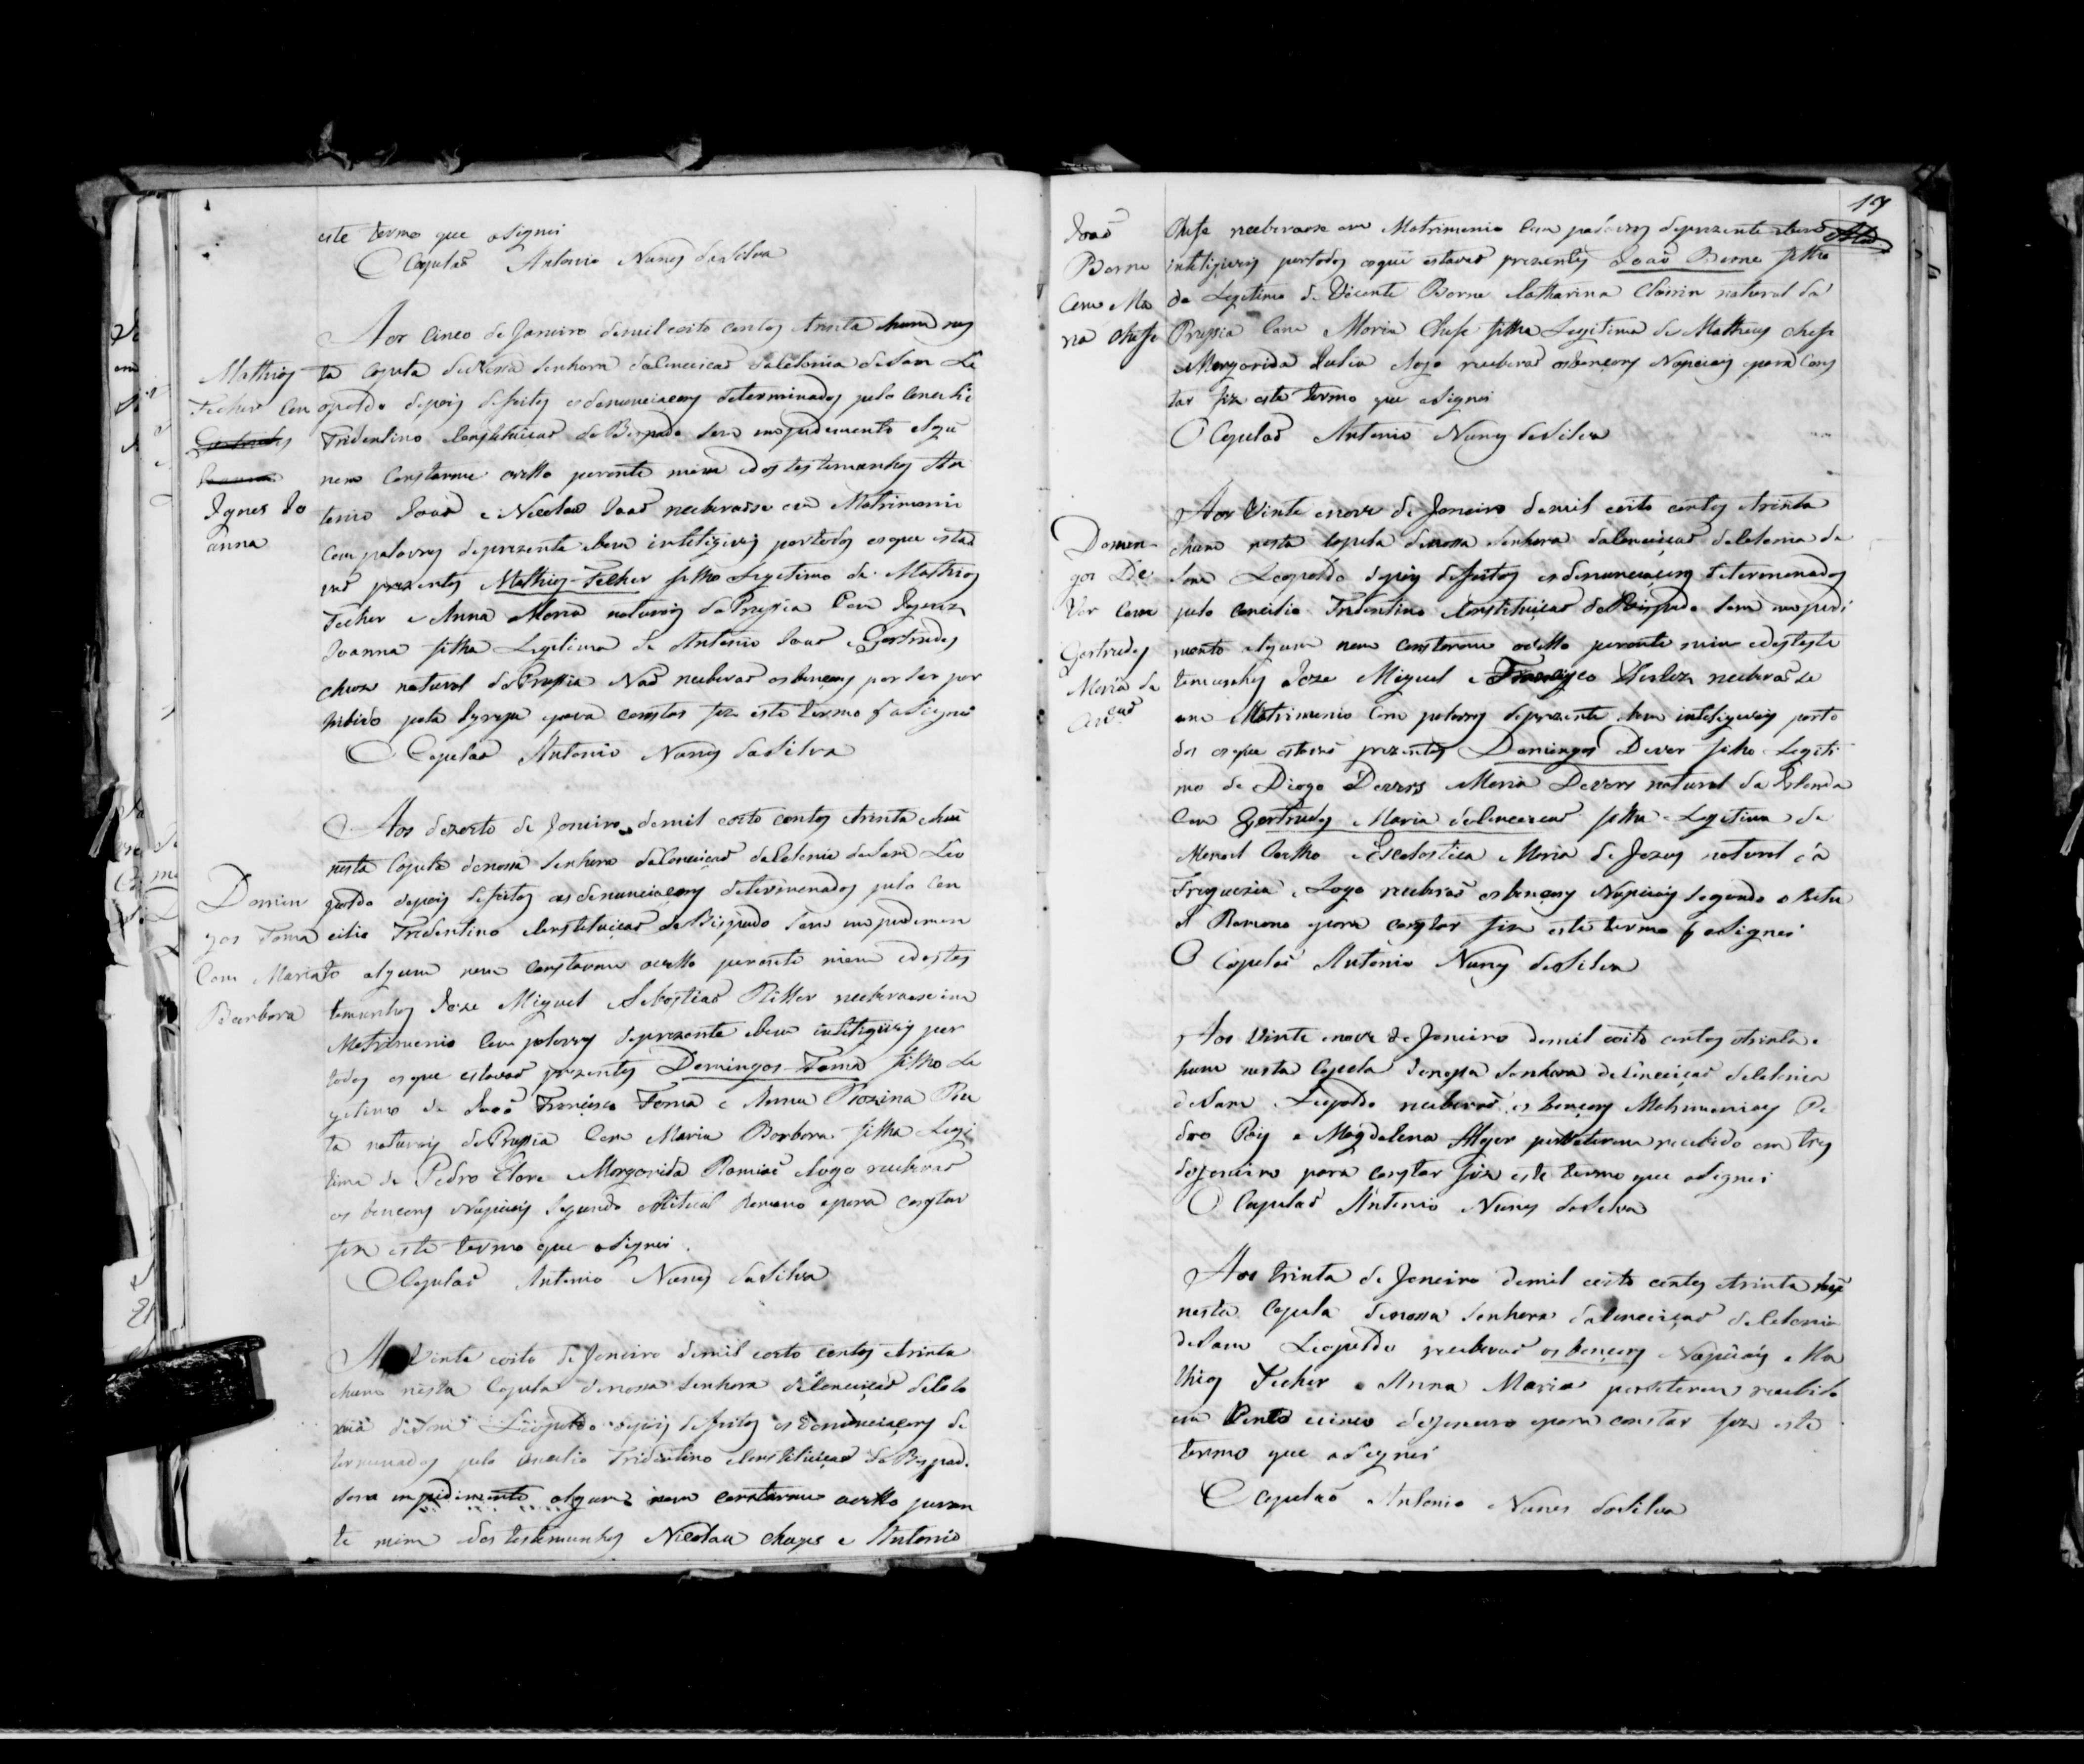 este termo que asignei
O Capelaõ Antonio Nunes da Silva
Mathias
Fecher com
Gertrudes
Joanna
Ignes Jo
anna
Aos Cinco de Janeiro de mil oito centos trinta e hum nes
ta Capela de Nossa Senhora da Conceicaõ da Colonia de Sam Le
opoldo depois de feitas as denunciacoens determinadas pelo Concili
Tridentino Constituicaõ do Bispado sem empedimento algu
nem Constarme avello perante mim e das testemunhas An
tonio Joaõ e Nicolao Joaõ receberaõse em Matrimonio
Com palavras de prezente e bem inteligiveis por todos os que esta
vaõ prezentes Mathias Fecher filho Legitimo de Mathias
Fecher e Anna Maria naturais da Prussia Com Ignez
Joanna filha Legitima de Antonio Joaõ e Gertrudes
natural da Prussia Naõ receberaõ as bençoens por ser por
hibido pela Igreja e para constar fiz este termo q asignei
O Capelaõ Antonio Nunes da Silva
Domin
gos Foma
Com Maria
Barbora
Aos dezoito de Janeiro de mil oito centos e trinta e hũ
nesta Capela de nossa Senhora da Conceicaõ da Colonia de Sam Leo
poldo depois de feitas as denunciacoens determenadas pelo Con
cilio Tridentino Constituicaõ do Bispado sem empedimen
to algum nem Constarme avello perante mim e das tes
temunhas Joze Miguel Sebastiaõ Ritter receberaose im
Matrimonio Com palavras de prezente e bem inteligiveis por
todos os que estavaõ prezentes Domingos Foma filho Le
gitimo de Joaõ Francisco Foma e Anna Rozina Reu
ta naturais da Prussia Com Maria Barbora filha Legi
tima de Pedro Elore Margarida Ramiaõ e logo receberaõ
as bencoens Nupciais Segundo o Ritual Romano e para constar
fiz este termo que asignei
O Capelaõ Antonio Nunes da Silva
Aos Vinte oito de Janeiro de mil oito centos e trinta
e hum nesta Capela de nossa Senhora da Conceicaõ da Colo
nia de Sam Leopoldo depois de feitas as denunciaçoens de
termenadas pelo Concilio Tridentino Constituicaõ do Bispad.
Sem impedimento algum nem constarme avello peran
te mim e das testemunhas Nicolau Chages e Antonio
17
Joaõ
Borne
Com Ma
ria Chesse
Chesse receberaose em Matrimonio Com palavras de prezente e bem
inteligiveis por todos os que estavaõ prezentes Joaõ Borne filho
da Legitimo de Vicente Borne Catharina Classin natural da
Prussia Com Maria Chesse filha Legitima de Matheus Chesse
e Margarida Julia e logo receberaõ as bençoens Nupciais e para Cons
tar fiz este termo que asignei
O Capelaõ Antonio Nunes da Silva
Domin
gos De
Ver Com
Gertrudes
Maria da
Aos Vinte e nove de Janeiro de mil oito centos e trinta
e hum nesta Capela de nossa Senhora da Conceiçaõ da Colonia de
Sam Leopoldo depois de feitas as denunciaçoens determenadas
pelo Concilio Tridentino Constituiçaõ do Bispado sem empedi
mento algum nem constarme avello perante mim e das teste
temunhas Joze Miguel e Francisco receberaõse
em Matrimonio Com palavras de prezente e bem inteligiveis por to
dos os que estavaõ prezentes Domingos Dever filho Legiti
mo de Diogo Devers Maria Devers natural da Islanda
Com Gertrudes Maria da Conceicaõ filha Legitima de
Manoel Coelho e Escolastica Maria de Jezus natural da
Freguezia e Logo receberaõ as bençoens Nupciais segundo o Retu
al Romano e para constar fiz este termo q asignei
O Capelaõ Antonio Nunes da Silva
Aos Vinte e nove de Janeiro de mil oito centos e trinta e
hum nesta Capela de nossa Senhora da Conceiçaõ da Colonia
de Sam Leopoldo receberaõ as bençoens Matrimoniais Pe
dro e Magdalena Alger por se terem recebido em tres
de Janeiro para constar fiz este termo que asignei
O Capelaõ Antonio Nunes da Silva
Aos trinta de Janeiro de mil oito centos e trinta e hũ
nesta Capela de nossa Senhora da Conceiçaõ da Colonia
de Sam Leopoldo receberaõ as bençoens Nupciais Ma
thias Fecher e Anna Maria por se terem recebido
em cinco de Janeiro e para constar fiz este
termo que asignei
O Capelaõ Antonio Nunes da Silva